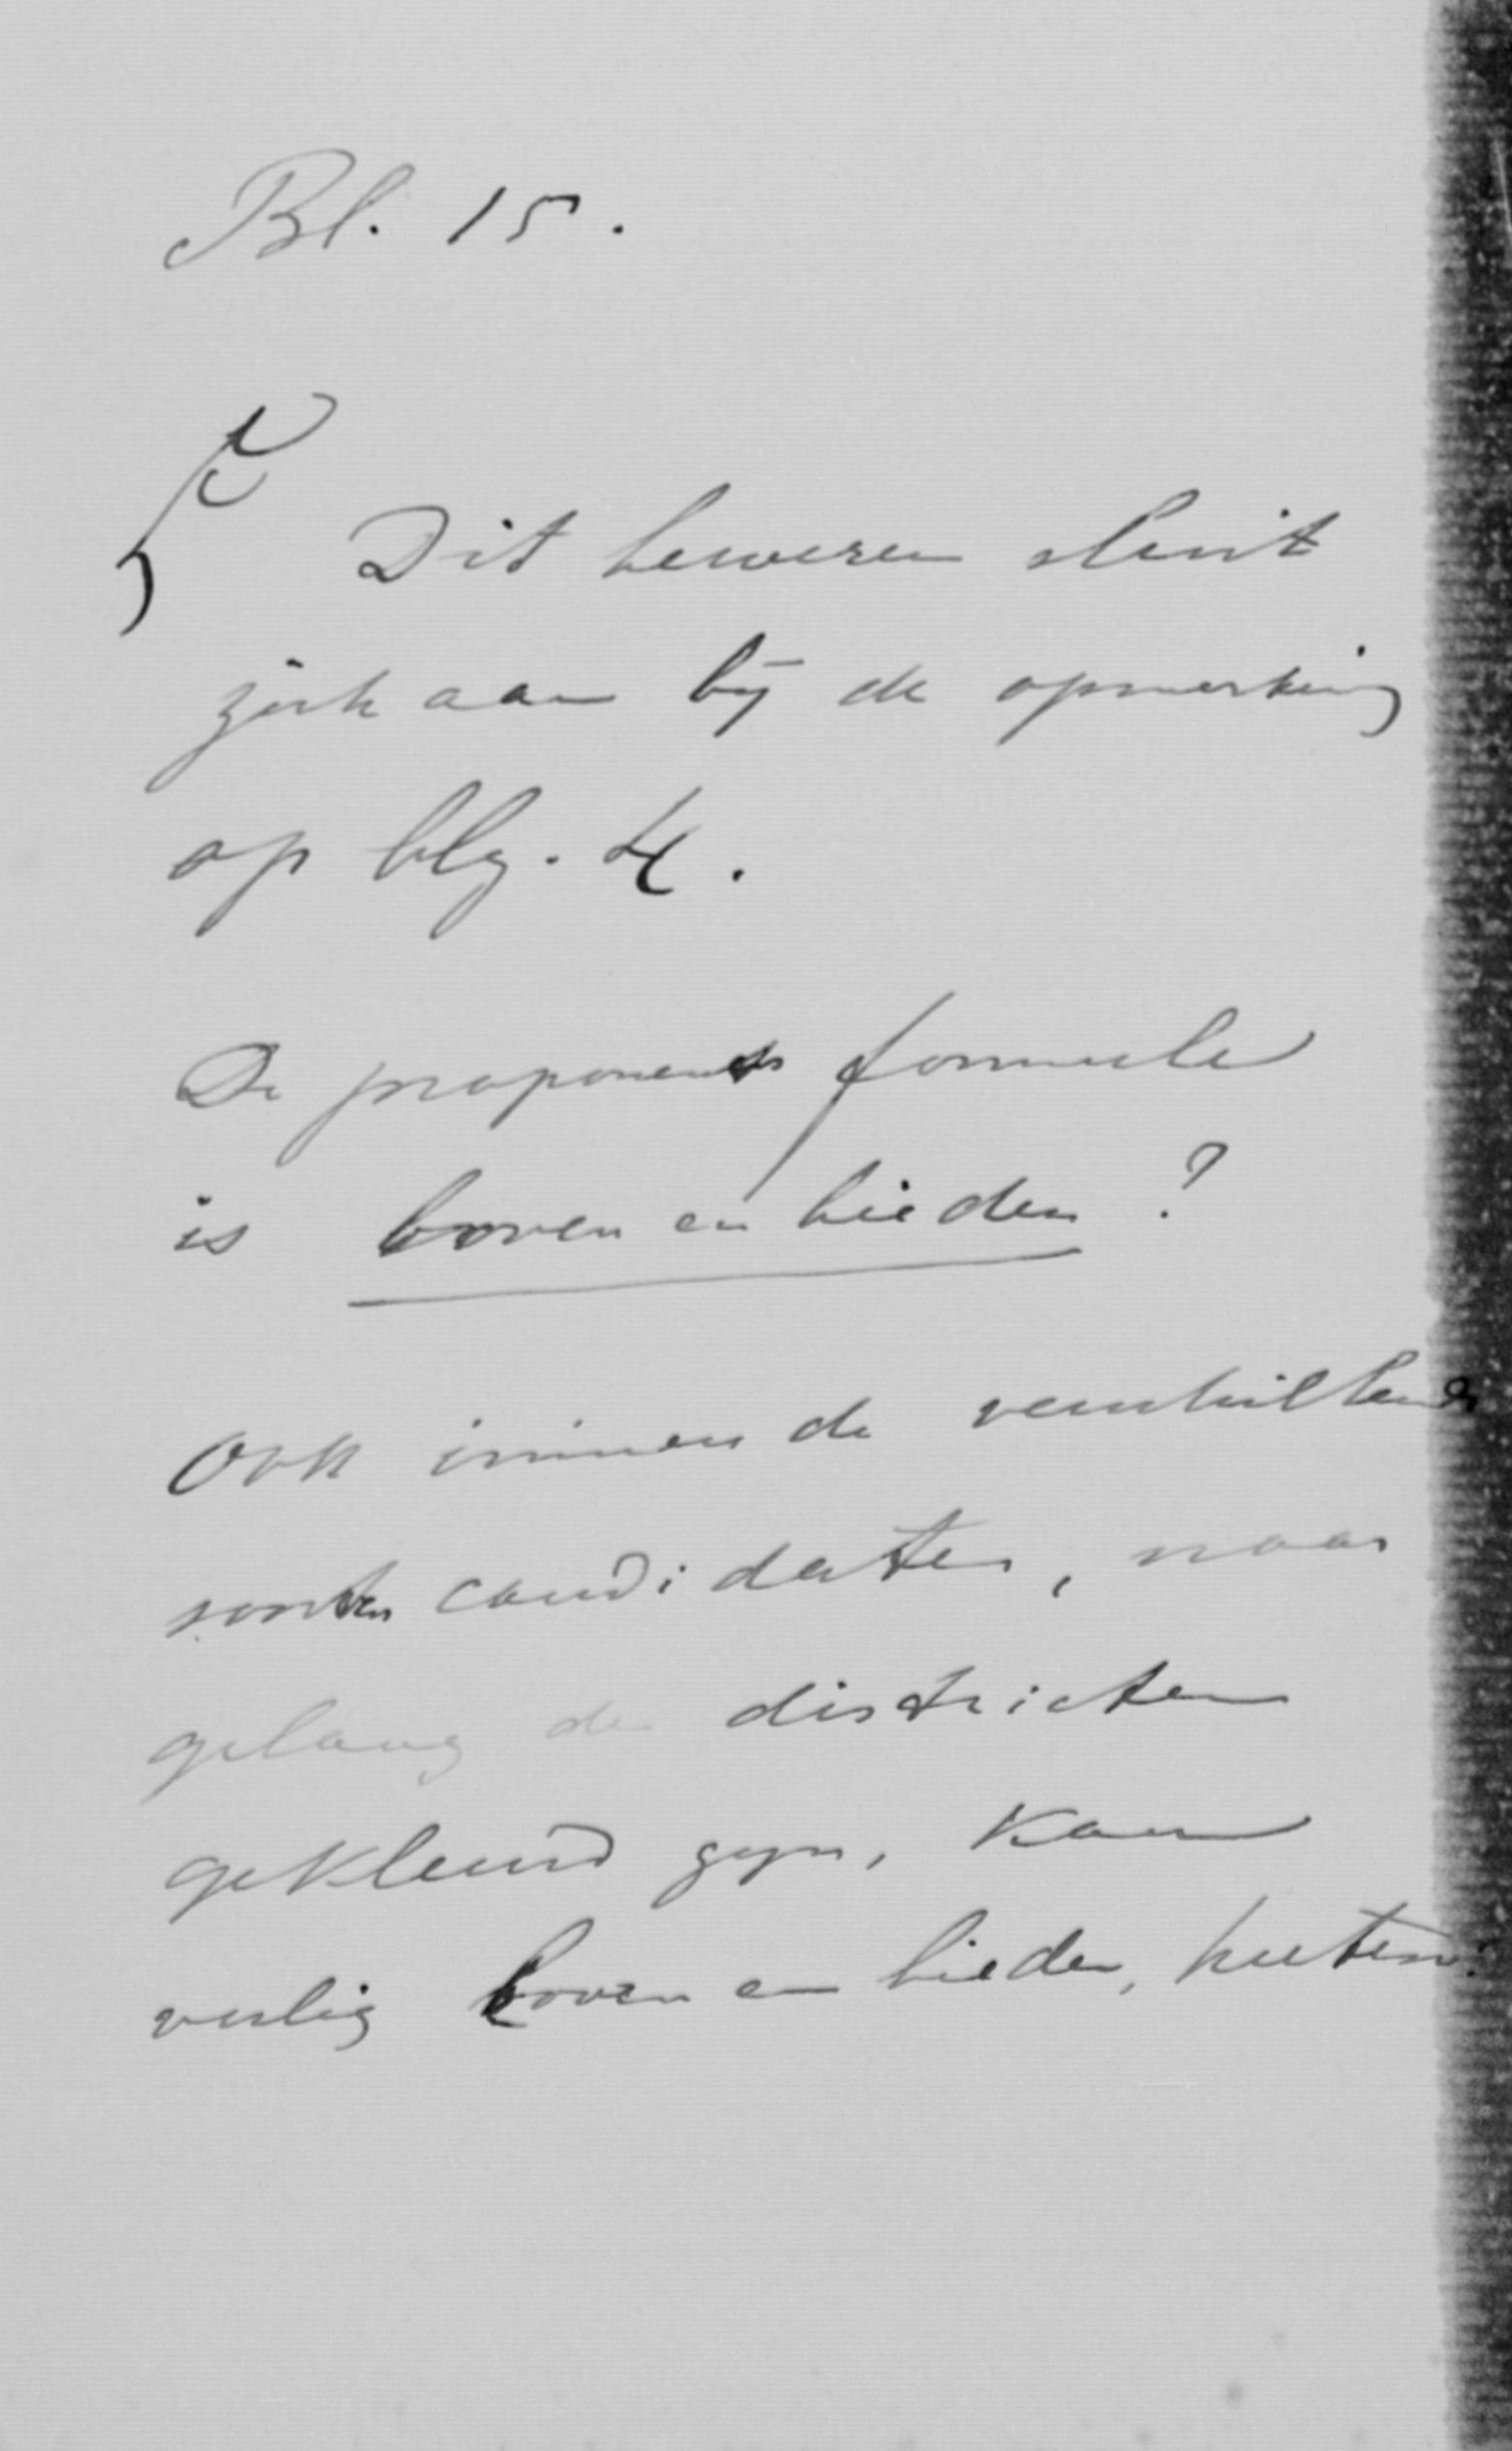 Bl. 15.
Dit beweren sluit
zich aan bij de opmerking
op blg. 4.
De proponents formule
is boven en bieden?
Ook immers de verschillende
soorten candidaten, naar
gelang de districten
gekleurd zijn, kan
veilig boven en bieden,